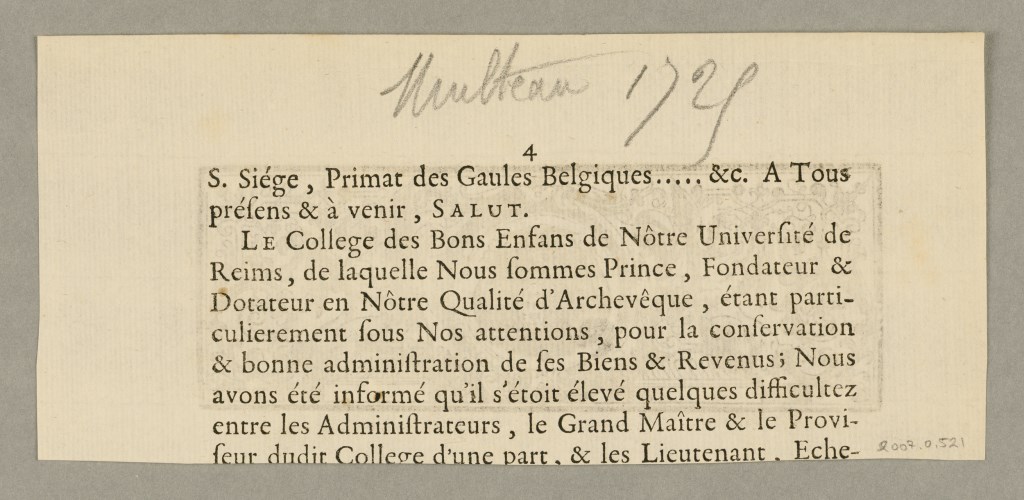 Multeau 1725
4
S. Siége, Primat des Gaules Belgiques..... &c. A Tous
préſens & à venir, SALUT.
LE College des Bons Enfans de Nôtre Univerſité de
Reims, de laquelle Nous ſommes Prince, Fondateur &
Dotateur en Nôtre Qualité d'Archevêque, étant parti-
culierement ſous Nos attentions, pour la conſervation
& bonne adminiſtration de ſes Biens & Revenus; Nous
avons été informé qu'il s'étoit élevé quelques difficultez
entre les Adminiſtrateurs, le Grand Maître & le Provi-
ſeur dudit College d'une part, & les Lieutenant, Eche-
2007.0.521